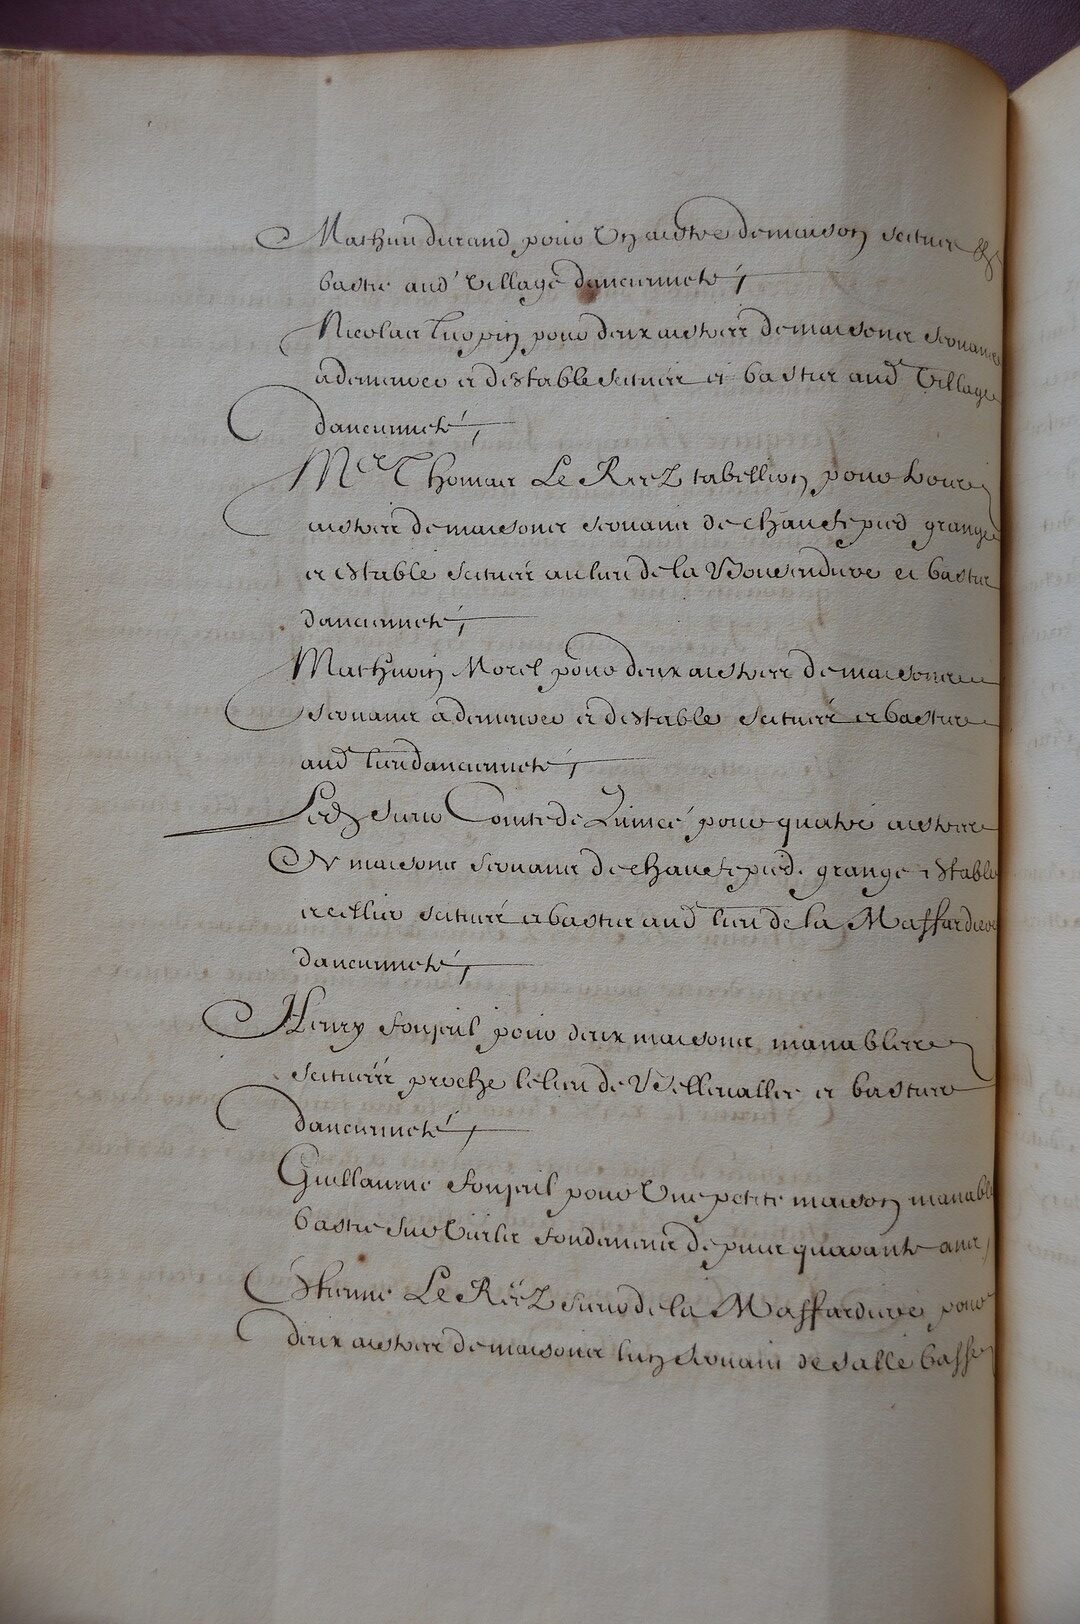 Mathieu durand pour Un aistre de maison scitue &
bastie aud' Village d'ancienneté,
Nicolas Turpin pour deux aistres de maisons servans
a demeurer et d'estable scituéé et basties aud Village
d'ancienneté,
Mee Thomas Le Reez tabellion pour douze
aistres de maisons servans de chaufepied grange
et estable scituéé au lieu de la et basties
d'ancienneté,
Mathurin Morel pour deux aistres de maisons
servans a demeurer et d'estable scituéé et basties
aud lieu d'ancienneté,
Led sieur Comte de pour quatre aistres
de maisons servans de chaufepied. grange estable
et cellier scituéé et basties aud lieu de la Maffardiere
d'ancienneté,
Henry pour deux maisons manables
scituéés proche le lieu de et basties
d'ancienneté,
Guillaume pour Une petite maison manable
bastie sur Vieilz fondemens depuis quarante ans,
Estienne Le Reez sieur de la Maffardiere pour
deux aistres de maisons lun servant de salle basse